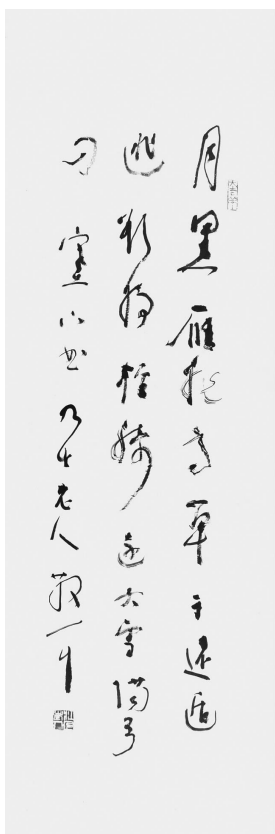 月黑雁飛高單于遠遁
逃欲將輕騎逐大雪滿弓
刀 塞下曲 老人